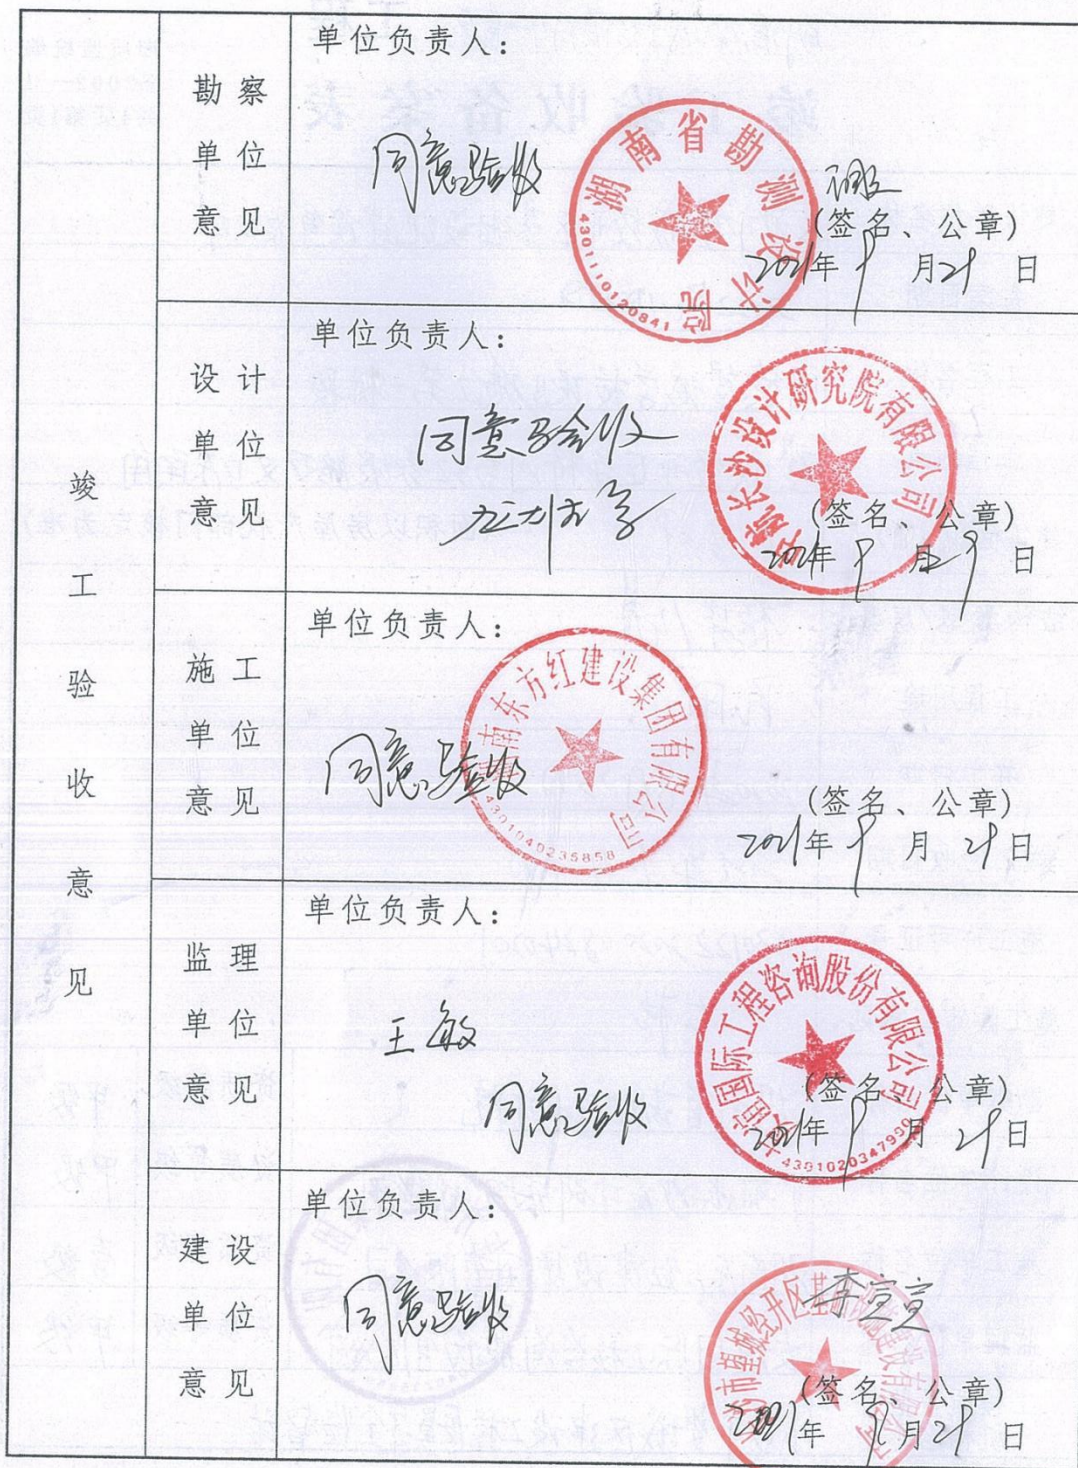 竣工验收意见
勘察单位意见
单位负责人：
同意验收
湖南省勘测设计院
4301110120841
（签名、公章）
2021年9月29日
设计单位意见
单位负责人：
同意验收
中航长沙设计研究院有限公司
（签名、公章）
2021年9月29日
施工单位意见
单位负责人：
同意验收
湖南东方红建设集团有限公司
4301040235858
（签名、公章）
2021年9月29日
监理单位意见
单位负责人：
王敏
同意验收
国际工程咨询股份有限公司
（签名、公章）
2021年9月29日
建设单位意见
单位负责人：
同意验收
李宣宣
市望城经开区基础设施建设有限公司
（签名、公章）
2021年9月29日